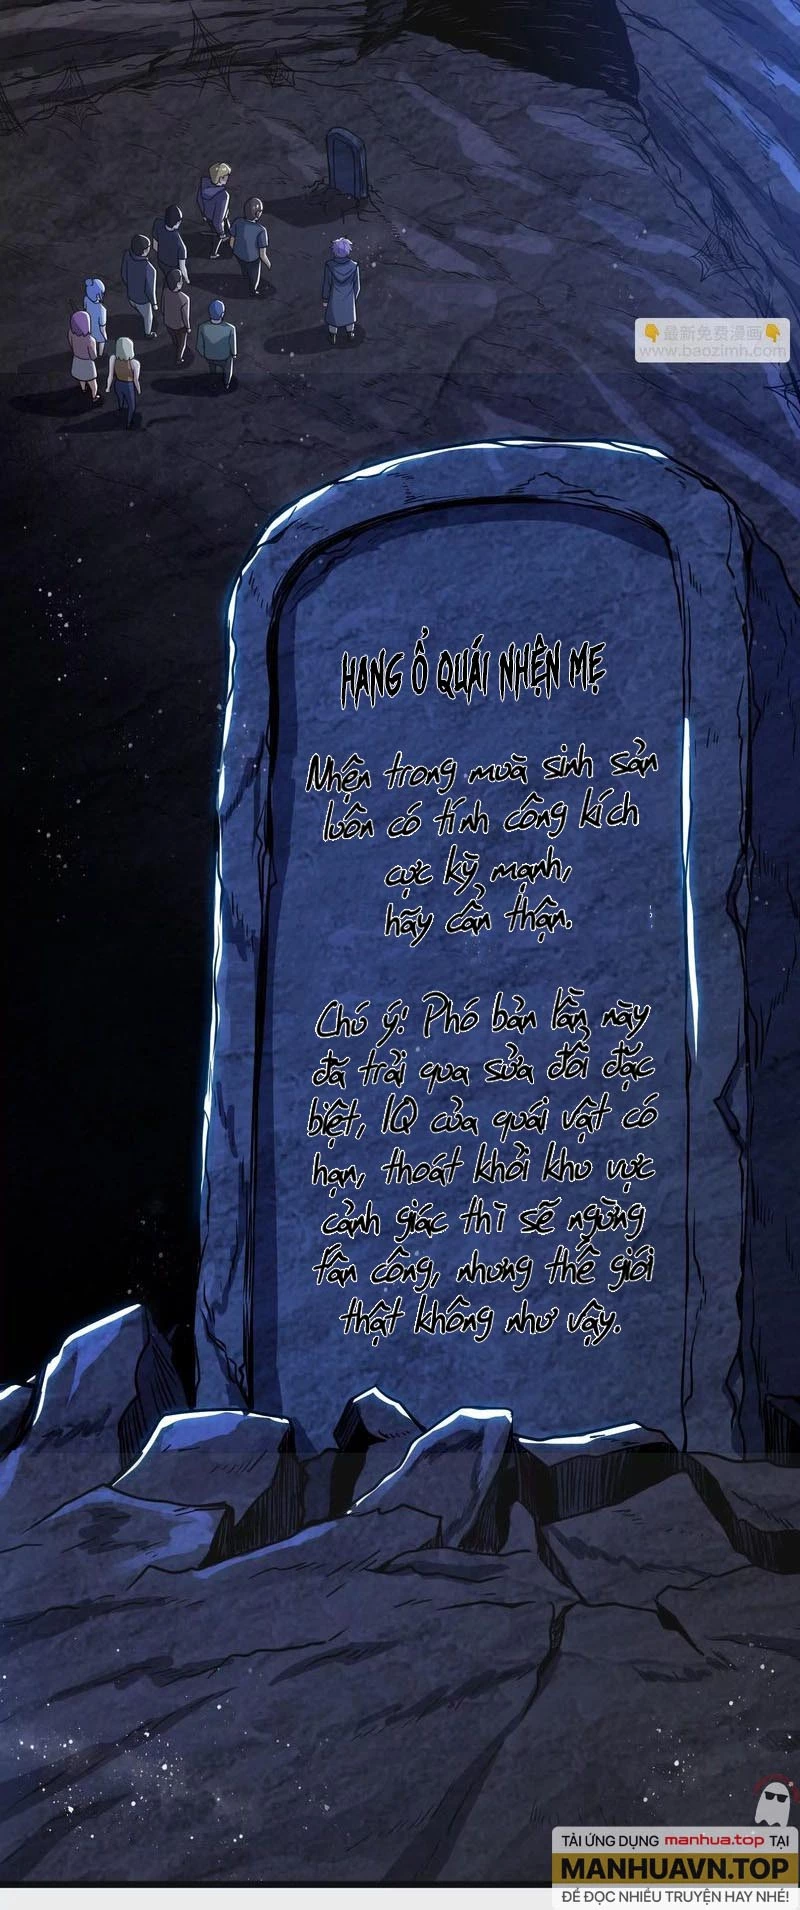 👇最新免费漫画👇
www.baozimh.com
HANG Ổ QUÁI NHỆN MẸ
Nhện trong mùa sinh sản
luôn có tính công kích
cực kỳ mạnh,
hãy cẩn thận.
Chú ý! Phó bản lần này
đã trải qua sửa đổi đặc
biệt, IQ của quái vật có
hạn, thoát khỏi khu vực
cảnh giác thì sẽ ngừng
tấn công, nhưng thế giới
thật không như vậy.
TẢI ỨNG DỤNG manhua.top TẠI
MANHUAVN.TOP
ĐỂ ĐỌC NHIỀU TRUYỆN HAY NHÉ!